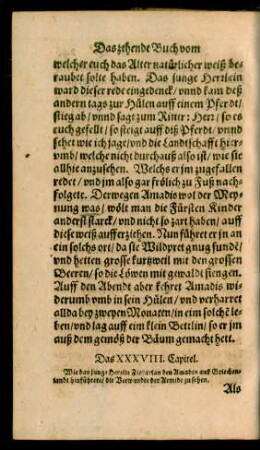 Das zehende Buch vom
welcher euch das Alter natürlicher weiß be-
raubet solte haben. Das junge Herrlein
ward dieser rede eingedenck/ vnnd kam deß
andern tags zur Hülen auff einem Pferdt/
stieg ab/ vnnd sagt zum Ritter: Herr/ so es
euch gefellt/ so steigt auff diß Pferdt/ vnnd
sehet wie ich jage/ vnd die Landschafft hier-
vmb/ welche nicht durchauß also ist/ wie sie
allhie anzusehen. Welchs er jm zugefallen
redet/ vnd jm also gar frölich zu Fuß nach-
folgete. Derwegen Amadis wol der Mey-
nung was/ wölt man die Fürsten Kinder
anderst starck/ vnd nicht so zart haben/ auff
diese weiß aufferziehen. Nun führet er jn an
ein solchs ort/ da sie Wildpret gnug fundē/
vnd hetten grosse kurtzweil mit den grossen
Beeren/ so die Löwen mit gewalt fiengen.
Auff den Abendt aber kehret Amadis wi-
derumb vmb in sein Hülen/ vnd verharret
allda bey zweyen Monaten/ in eim solchē le-
ben/ vnd lag auff eim klein Bettlin/ so er jm
auß dem gemöß der Bäum gemacht hett.
Das XXXVIII. Capitel.
Wie das junge Herrlin den Amadis auß Griechen-
landt hinführete/ die zu sehen.
Als